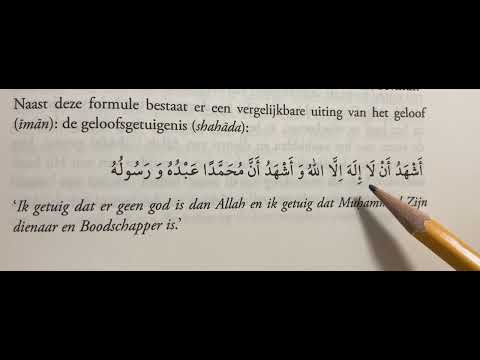 Naast deze formule bestaat er een vergelijkbare uiting van het geloof
(īmān): de geloofsgetuigenis (shahāda):
أَشْهَدُ أَنْ لَا إِلَهَ إِلَّا اللهُ وَ أَشْهَدُ أَنَّ مُحَمَّدًا عَبْدُهُ وَ رَسُولُهُ
‘Ik getuig dat er geen god is dan Allah en ik getuig dat Muhammad Zijn
dienaar en Boodschapper is.’